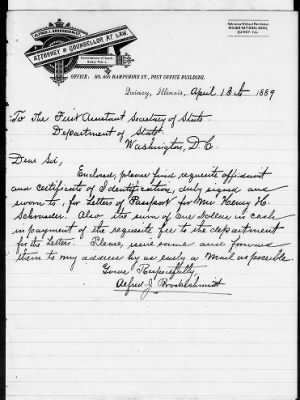 ALFRED J. BROCKSCHMIDT,
ATTORNEY & COUNSELLOR AT LAW,
Quincy, Ills.
Reference with Permission
QUINCY, Ills.
OFFICE: No. HAMPSHIRE ST., POST OFFICE BUILDING.
Quincy, Illinois, April 13th 1889
To The First Assistant Secretary of State
Department of State
Washington, D.C.
Dear Sir,
Enclosed, please find, requisite affidavit
and certificate of Identification, duly signed and
sworn to, for Letters of Passport for Mr. Henry H.
Schroeder. Also the sum of One Dollar in cash
in payment of the requisite fee to the department
for the Letters. Please, issue same and forward
them to my address by as early a Mail as possible.
Yours Respectfully,
Alfred J. Brockschmidt